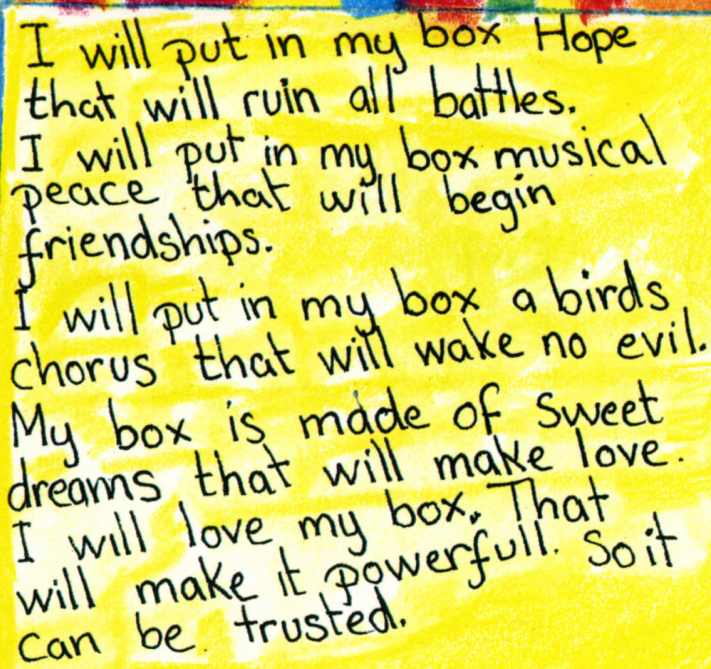 I will put in my box Hope
that will ruin all battles.
I will put in my box musical
peace that will begin
friendships.
I will put in my box a birds
chorus that will wake no evil.
My box is made of Sweet
dreams that will make love.
I will love my box. That
will make it powerfull. So it
can be. trusted.